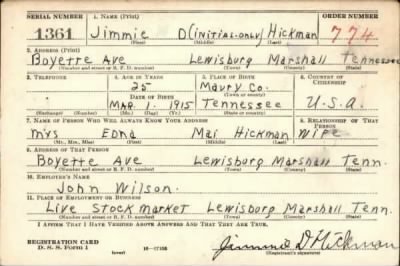 SERIAL NUMBER 1. NAME (Print) ORDER NUMBER
1361 Jimmie D(initial-only) Hickman 774
(First) (Middle) (Last)
2. ADDRESS (Print)
Boyette Ave Lewisburg Marshall Tennessee
(Number and street or R. F. D. number) (Town) (County) (State)
3. TELEPHONE 4. AGE IN YEARS 5. PLACE OF BIRTH 6. COUNTRY OF CITIZENSHIP
25 Maury Co.
DATE OF BIRTH (Town or county)
Mar. 1 1915 Tennessee U.S.A.
(Exchange) (Number) (Mo.) (Day) (Yr.) (State or country)
7. NAME OF PERSON WHO WILL ALWAYS KNOW YOUR ADDRESS 8. RELATIONSHIP OF THAT PERSON
Mrs Edna Mai Hickman Wife
(Mr., Mrs., Miss) (First) (Middle) (Last)
9. ADDRESS OF THAT PERSON
Boyette Ave Lewisburg Marshall Tenn.
(Number and street or R. F. D. number) (Town) (County) (State)
10. EMPLOYER'S NAME
John Wilson.
11. PLACE OF EMPLOYMENT OR BUSINESS
Live Stock market Lewisburg Marshall Tenn.
(Number and street or R. F. D. number) (Town) (County) (State)
I AFFIRM THAT I HAVE VERIFIED ABOVE ANSWERS AND THAT THEY ARE TRUE.
REGISTRATION CARD
D. S. S. Form 1 (over) 16-17105 Jimmie D Hickman
(Registrant's signature)